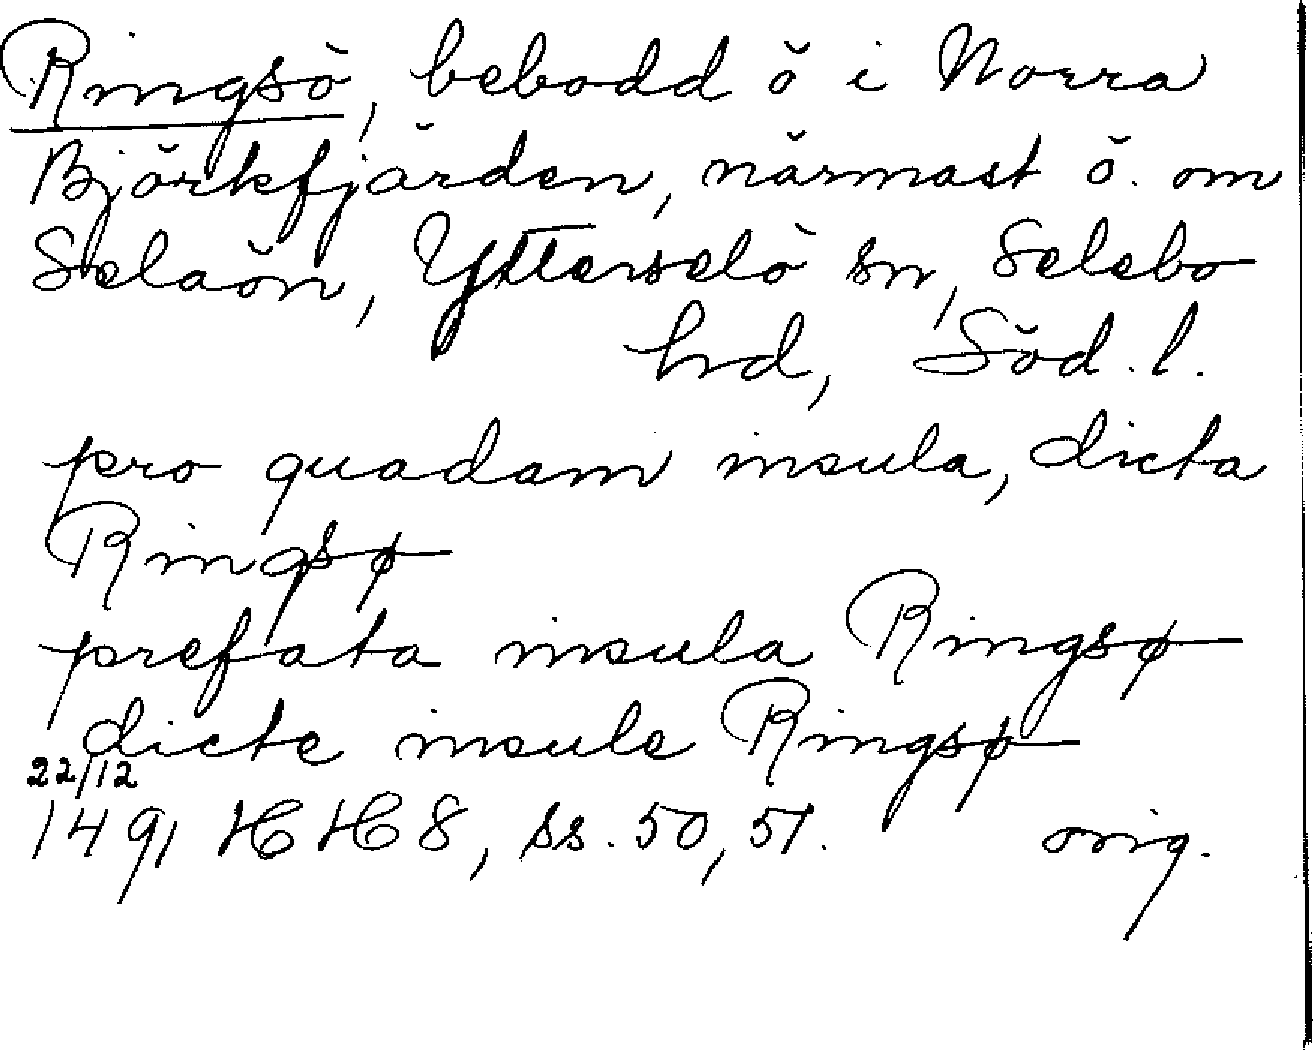 Ringsö, bebodd ö i Norra
Björkfjärden, närmast ö. om
Selaön, Ytterselö sn, Selebo
hd, Söd. l.
pro quadam insula, dicta
Ringsø
prefata insula Ringsø
dicte insule Ringsø
22/12
1491 HH 8, ss. 50, 51. orig.